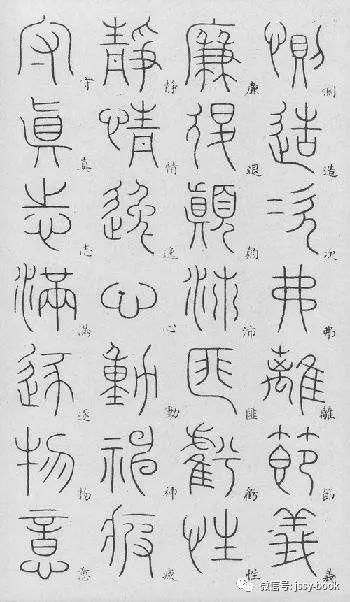 惻造次弗離節義
廉退顛沛匪虧性
靜情逸心動神疲
守真志滿逐物意
微信号: jssy-book